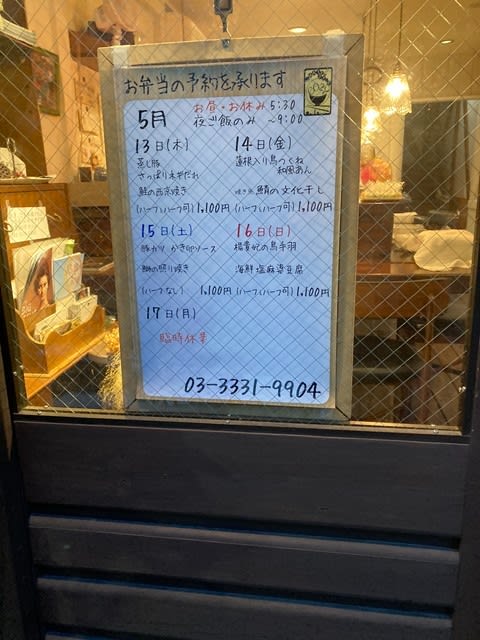 お弁当の予約を承ります
5月
お昼・お休み 5:30
夜ご飯のみ 〜9:00
13日(木)
蒸し豚
さっぱりネギだれ
鮭の西京焼き
(ハーフ&ハーフ可) 1,100円
14日(金)
蓮根入り鳥つくね
和風あん
鯖の文化干し
(ハーフ&ハーフ可) 1,100円
15日(土)
豚カツ かき卵ソース
鰤の照り焼き
(ハーフなし) 1,100円
16日(日)
楊貴妃の鳥手羽
海鮮塩麻婆豆腐
(ハーフ&ハーフ可) 1,100円
17日(月)
臨時休業
03-3331-9904